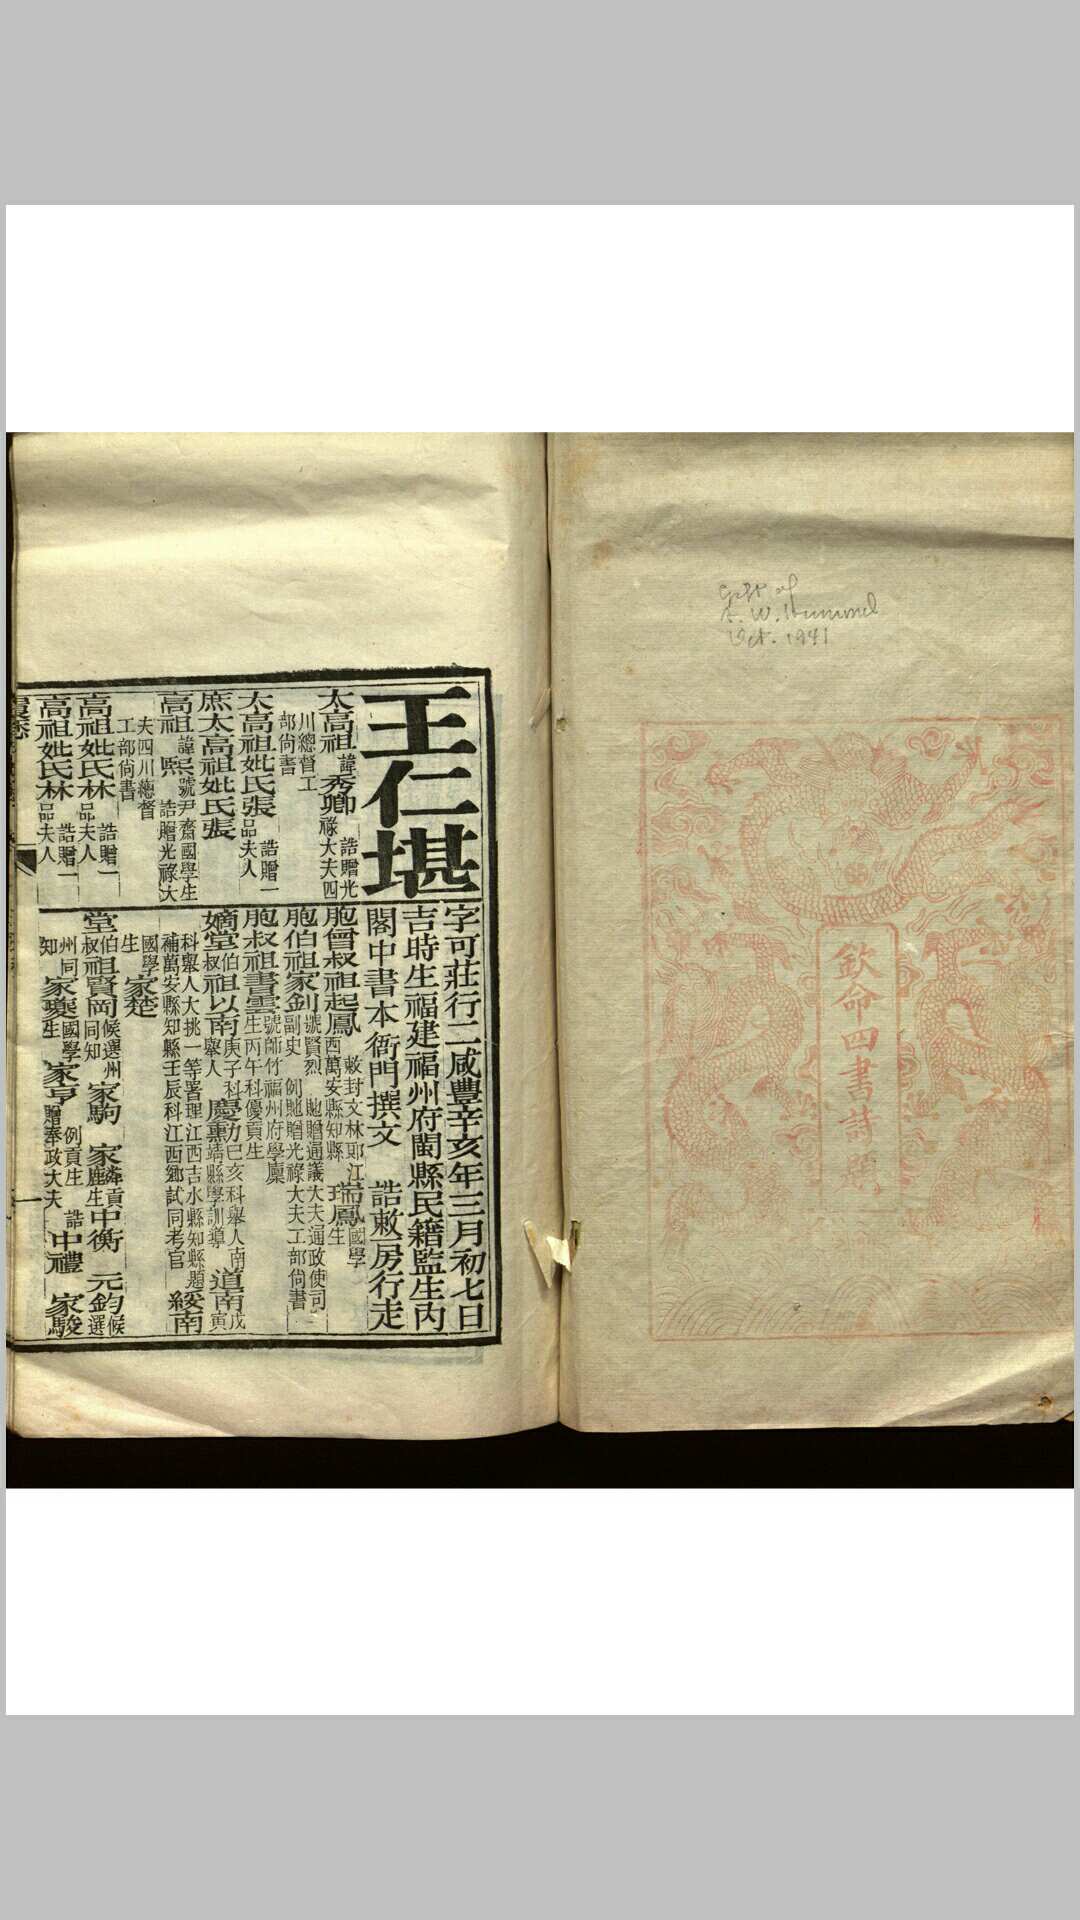 Gift of
A. W. Hummel
Oct. 1941
欽命四書詩題
王仁堪
字可莊行二咸豐辛亥年三月初七日
吉時生福建福州府閩縣民籍監生內
閣中書本衙門撰文 誥敕房行走
太高祖諱秀卿 誥贈光祿大夫四川總督工部尚書
太高祖妣氏張 誥贈一品夫人
庶太高祖妣氏張
高祖諱熙號尹齋國學生 誥贈光祿大夫四川總督工部尚書
高祖妣氏林 誥贈一品夫人
高祖妣氏林 誥贈一品夫人
胞曾叔祖起鳳 敕封文林郎江西萬安縣知縣 瑞鳳國學生
胞伯祖家釗號賢烈 貤贈通議大夫通政使司副史 例貤贈光祿大夫工部尚書
胞叔祖書雲號節竹福州府學廩生丙午科優貢生
嫡堂伯叔祖以南庚子科舉人 慶熏乙巳亥科舉人南靖縣學訓導 道南戊寅
科舉人大挑一等署理江西吉水縣知縣題補萬安縣知縣壬辰科江西鄉試同考官 綏南
國學生 家楚
堂伯叔祖賢岡候選州同知 家駒 家麟 家鹿貢生 中衡 元鈞候選
州同知 家璣國學生 家亨例貢生 誥贈奉政大夫 中禮 家駿
一